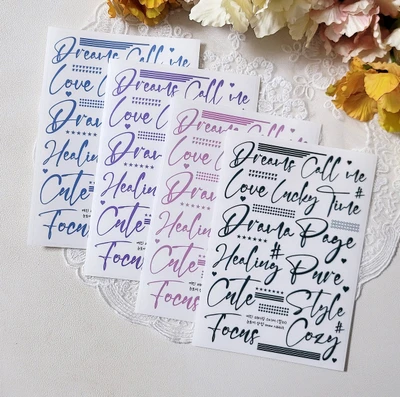 Dreams Call me
Love
Drama
Healing
Cute
Focus
Dreams Call me
Love
Drama
Healing
Cute
Focus
Dreams Call me
Love
Drama
Healing
Cute
Focus
Dreams Call me
Love Lucky Time
Drama Page
#
Healing Pure
Cute Style
#
Focus Cozy